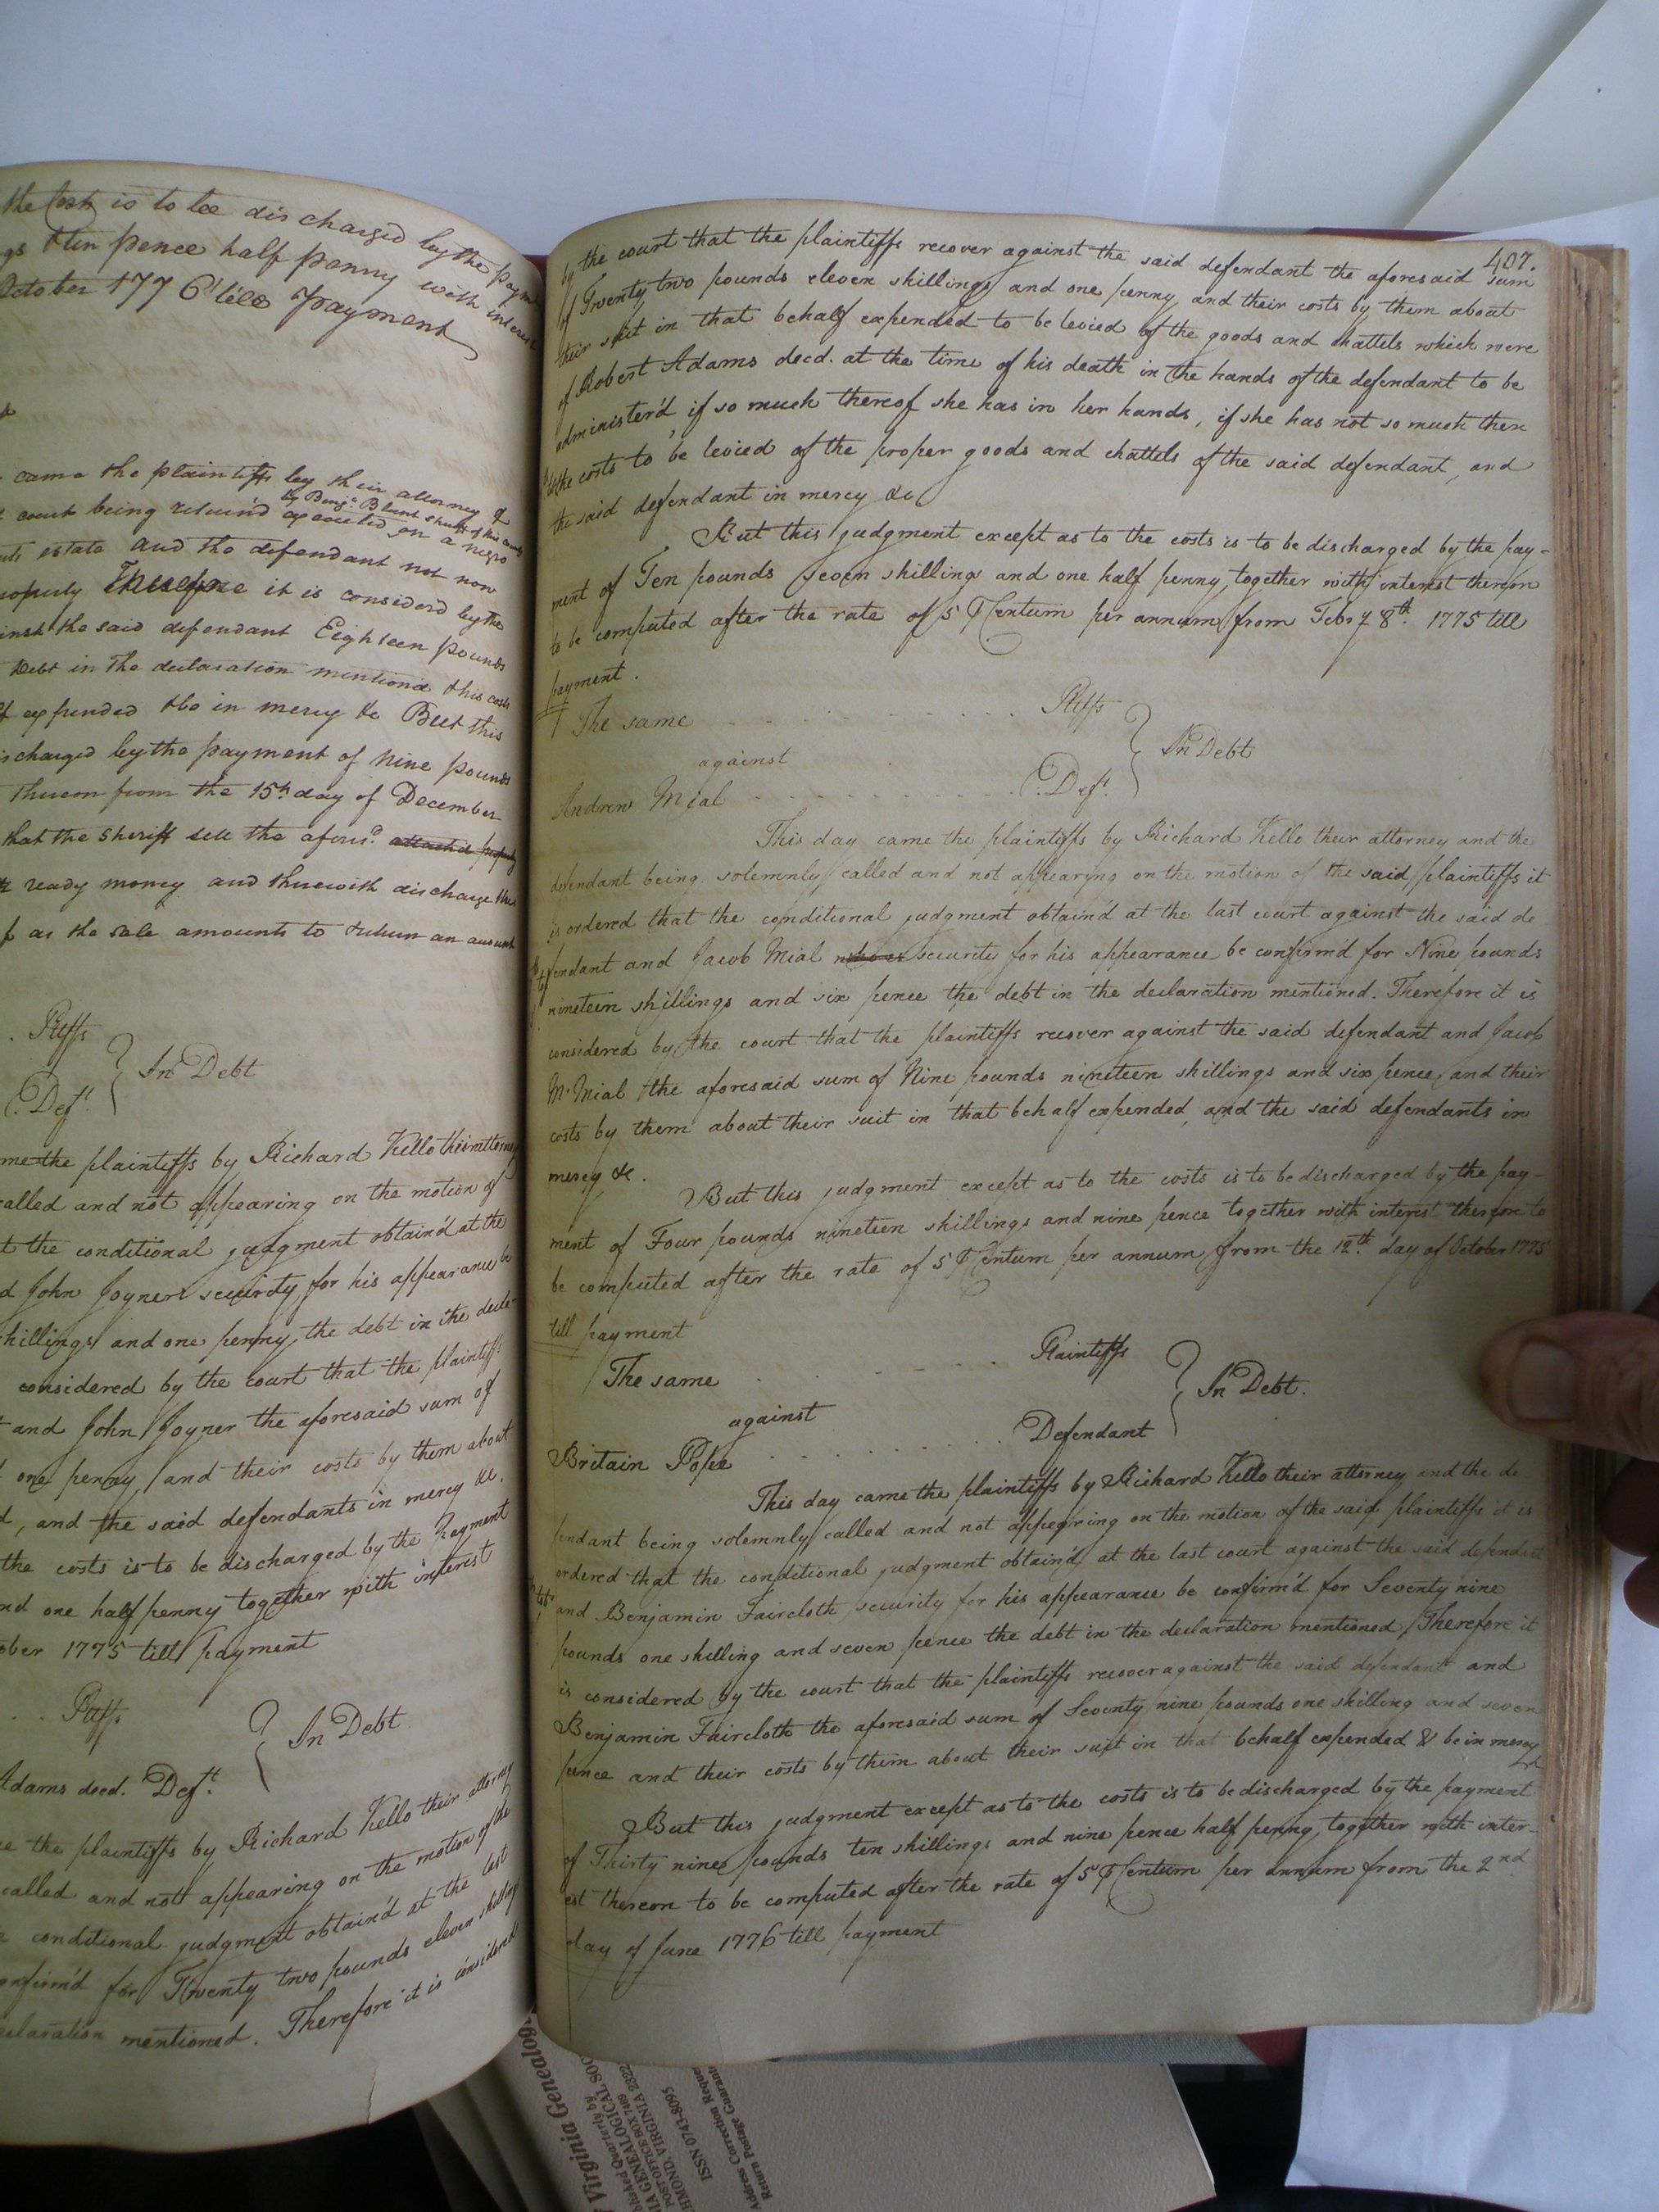 the Cost is to bee discharged by the paym
gs & ten pence half penny with interest
October 1776 till payment
came the plaintiffs by their attorney &
by Benja. Blunt Sheriff of this County
court being returnd executed on a negro
estate and the defendant not now
Therefore it is considerd by the
inst the said defendant Eighteen pounds
Debt in the declaration mentiond & his costs
expended & be in mercy &c But this
ischarged by the payment of Nine pounds
thereon from the 15th day of December
that the sheriff sell the aforesd. attached property
ready money and therewith discharge this
as the sale amounts to & return an account
Pltffs
In Debt
Deft.
me the plaintiffs by Richard Kello their attorney
called and not appearing on the motion of
the conditional judgment obtain'd at the
d John Joyner security for his appearance be
shillings and one penny the debt in the decla-
considered by the court that the plaintiffs
and John Joyner the aforesaid sum of
one penny, and their costs by them about
d, and the said defendants in mercy &c.
the costs is to be discharged by the Payment
nd one half penny together with interest
ober 1775 till payment
Pltffs
In Debt
Adams decd. Deft.
e the plaintiffs by Richard Kello their attorney
called and not appearing on the motion of the
conditional judgment obtain'd at the last
onfirm'd for Twenty two pounds eleven shillings
eclaration mentioned. Therefore it is considered
407.
by the court that the plaintiffs recover against the said defendant the aforesaid sum
of Twenty two pounds eleven shillings and one penny, and their costs by them about
their suit in that behalf expended to be levied of the goods and chattels which were
of Robert Adams decd. at the time of his death in the hands of the defendant to be
administer'd if so much thereof she has in her hands, if she has not so much then
the costs to be levied of the proper goods and chattels of the said defendant, and
the said defendant in mercy &c
But this judgment except as to the costs is to be discharged by the pay-
ment of Ten pounds seven shillings and one half penny, together with interest thereon
to be computed after the rate of 5 ⅌ Centum per annum from Feb'y 8th. 1775 till
payment.
The same Pltffs
against In Debt
Andrew Mial Deft.
This day came the plaintiffs by Richard Kello their attorney and the
defendant being solemnly called and not appearing on the motion of the said plaintiffs it
is ordered that the conditional judgment obtain'd at the last court against the said de
fendant and Jacob Mial security for his appearance be confirm'd for Nine pounds
nineteen shillings and six pence the debt in the declaration mentioned. Therefore it is
considered by the court that the plaintiffs recover against the said defendant and Jacob
Mial the aforesaid sum of Nine pounds nineteen shillings and six pence, and their
costs by them about their suit in that behalf expended, and the said defendants in
mercy &c.
But this judgment except as to the costs is to be discharged by the pay-
ment of Four pounds nineteen shillings and nine pence together with interest thereon to
be computed after the rate of 5 ⅌ Centum per annum from the 12th. day of October 1775
till payment
The same Plaintiffs
against In Debt.
Britain Pope Defendant
This day came the plaintiffs by Richard Kello their attorney and the de
fendant being solemnly called and not appearing on the motion of the said plaintiffs it is
ordered that the conditional judgment obtain'd at the last court against the said defendant
and Benjamin Faircloth security for his appearance be confirm'd for Seventy nine
pounds one shilling and seven pence the debt in the declaration mentioned, Therefore it
is considered by the court that the plaintiffs recover against the said defendant and
Benjamin Faircloth the aforesaid sum of Seventy nine pounds one shilling and seven
pence and their costs by them about their suit in that behalf expended & be in mercy
&c
But this judgment except as to the costs is to be discharged by the payment
of Thirty nine pounds ten shillings and nine pence half penny, together with inter-
est thereon to be computed after the rate of 5 ⅌ Centum per annum from the 2nd
day of June 1776 till payment
Virginia Genealog
blished Quarterly by
IA GENEALOGICAL SOC
POST OFFICE BOX 7469
HMOND, VIRGINIA 2322
ISSN 0743-8095
Address Correction Reque
Return Postage Guarant